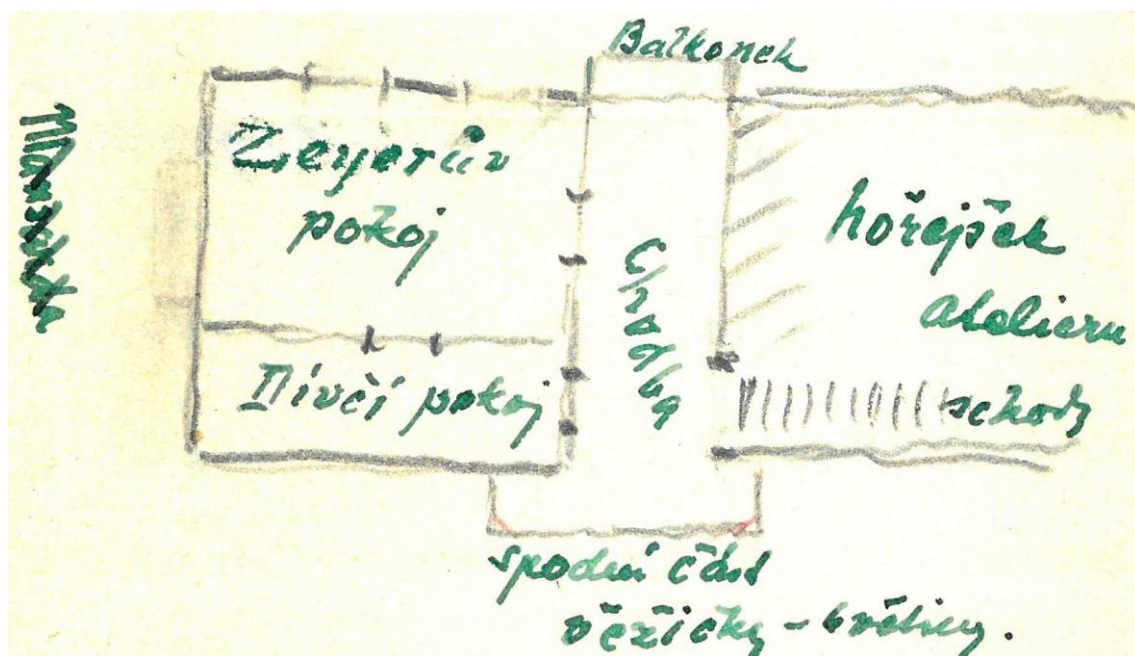 Balkonek
Mansarda
Zeyerův
pokoj
Dívčí pokoj
Chodba
hořejšek
atelieru
schody
spodní část
věžičky - květiny.